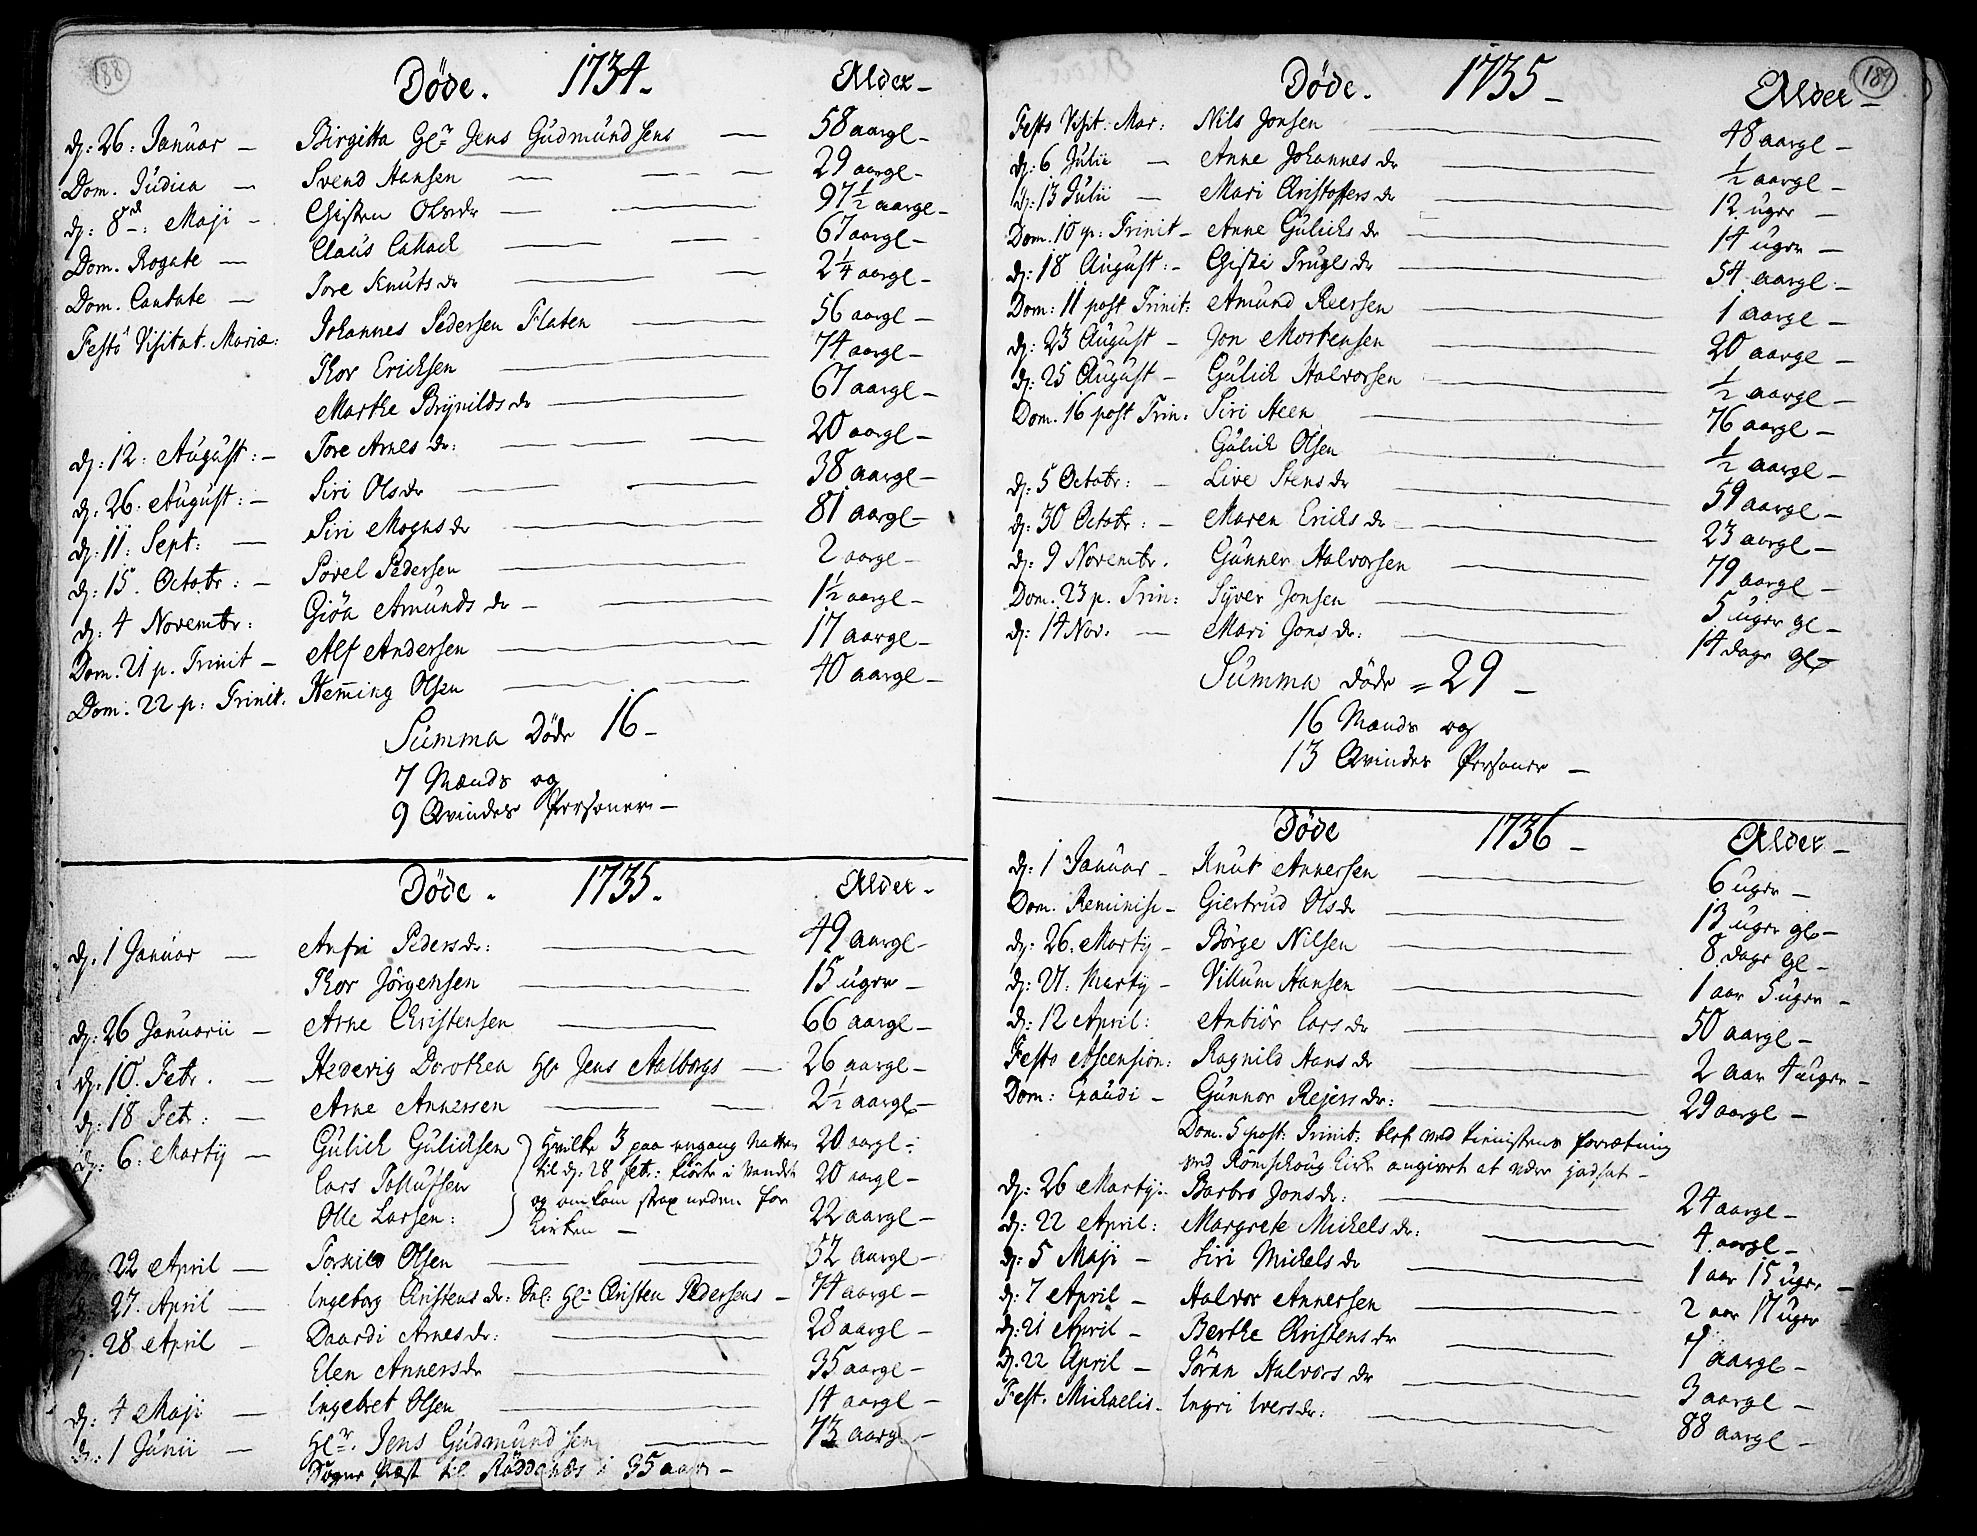 188
Döde. 1734. Alder
d: 26: Januar — Birgitta Hr Jens Gudmundsens — 58 aargl
Dom. Judica — Svend Hansen — 29 aargl
d: 8de: Maji — Olsdr — 97½ aargl
Dom. Rogate — Claus — 67 aargl
Dom. Cantate — Tore Knutsdr — 2¼ aargl
Festô Visitat. Mariæ: Johannes Pedersen Flaten — 56 aargl
Thor Ericksen — 74 aargl
Marthe Brÿnildsdr — 67 aargl
d: 12: August: — Tore Arnesdr: — 20 aargl
d: 26. August: — Siri Olsdr — 38 aargl
d: 11: Sept: — Siri Mognsdr — 81 aargl
d: 15. Octobr: — Povel Pedersen — 2 aargl
d: 4 Novembr: Giöa Amundsdr — 1½ aargl
Dom. 21 p. Trinit — Alf Andersen — 17 aargl
Dom. 22 p: Trinit. Hem̅ing Olsen — 40 aargl
Summa Döde 16 —
7 Mænds og
9 Qvindes Personer —
Döde. 1735. Alder
d. 1 Januar — Anfri Pedersdr: — 49 aargl
Thor Jörgensen — 15 uger
d: 26 Januarii — Arne Christensen — 66 aargl
d: 10. Febr. — Hedevig Dorothea Hr Jens Aalborgs — 26 aargl
d: 18 Febr: — Arne Annersen — 2½ aargl
d: 6: Martij — Gulick Gulicksen } Hvilke 3 paa engang Natten 20 aargl
Lars til d. 28 febr: kiörte i Vandet 20 aargl
Olle Larsen: og omkom strax neden for 22 aargl
Kirken —
22 April — Torkild Olsen — 52 aargl
27. April — Ingeborg Christensdr: Sal: Hr: Christen Pedersens — 74 aargl
28 April — Daardi Arnesdr: — 28 aargl
Elen Annersdr — 35 aargl
d: 4 Maji — Ingebret Olsen — 14 aargl
d: 1 Junii — Hr. Jens Gudmundsen — 73 aargl
Sogne Præst til Röddenæs i 35 aar —
189
Döde. 1735 — Alder —
Festo Visit. Mar: Nils Jonsen — 48 aargl
d: 6 Julii — Anne Johannesdr — ½ aargl
d: 13 Julii — Mari Christoffersdr — 12 uger
Dom. 10 p: Trinit — Anne Gulicksdr — 14 uger
d: 18 August: — Truelsdr — 54 aargl
Dom: 11 post Trinit: Amund Reersen — 1 aargl
d: 23 August — Jon Mortensen — 20 aargl
d: 25 August — Gulick Halvorsen — ½ aargl
Dom. 16 post Trin: Siri Heen — 76 aargl
Gulick Olsen — ½ aargl
d: 5 Octobr: — Live Stensdr — 59 aargl
d: 30 Octobr: — Maren Ericksdr — 23 aargl
d: 9 Novembr. Gunner Halvorsen — 79 aargl
Dom. 23 p. Trin: Syver Jonsen — 5 uger gl
d: 14 Nov. — Mari Jonsdr: — 14 dage gl
Summa döde = 29 —
16 Mænds og
13 Qvindes Personer —
Döde 1736 — Alder —
d: 1 Januar — Knut Annersen — 6 uger
Dom. Reminisc — Giertrud Olsdr — 13 uger gl
d: 26: Martij — Börge Nilsen — 8 dage gl
d: 21: Martij — Villum Hansen — 1 aar 5 uger
d: 12 April: Antiör Larsdr — 50 aargl
Festo Ascension: Ragnild Hansdr — 2 aar 4 uger
Dom: Exaudi — Gunnor Rejersdr: — 29 aargl
Dom. 5 post: Trinit: blef ved Tienistens forretning
ved Römskoug Kirke angivet at være jordsat —
d: 26 Martij: Barbro Jonsdr: — 24 aargl
d: 22 April: Margrete Mickelsdr: — 4 aargl
d: 5 Maji — Siri Mickelsdr — 1 aar 15 uger
d: 7 April — Halvor Annersen — 2 aar 17 uger
d: 21 April — Berthe Christensdr — aargl
d. 22 April — Jöran Halvorsdr — 3 aargl
Fest. Michaelis. Ingri Iversdr: — 88 aargl